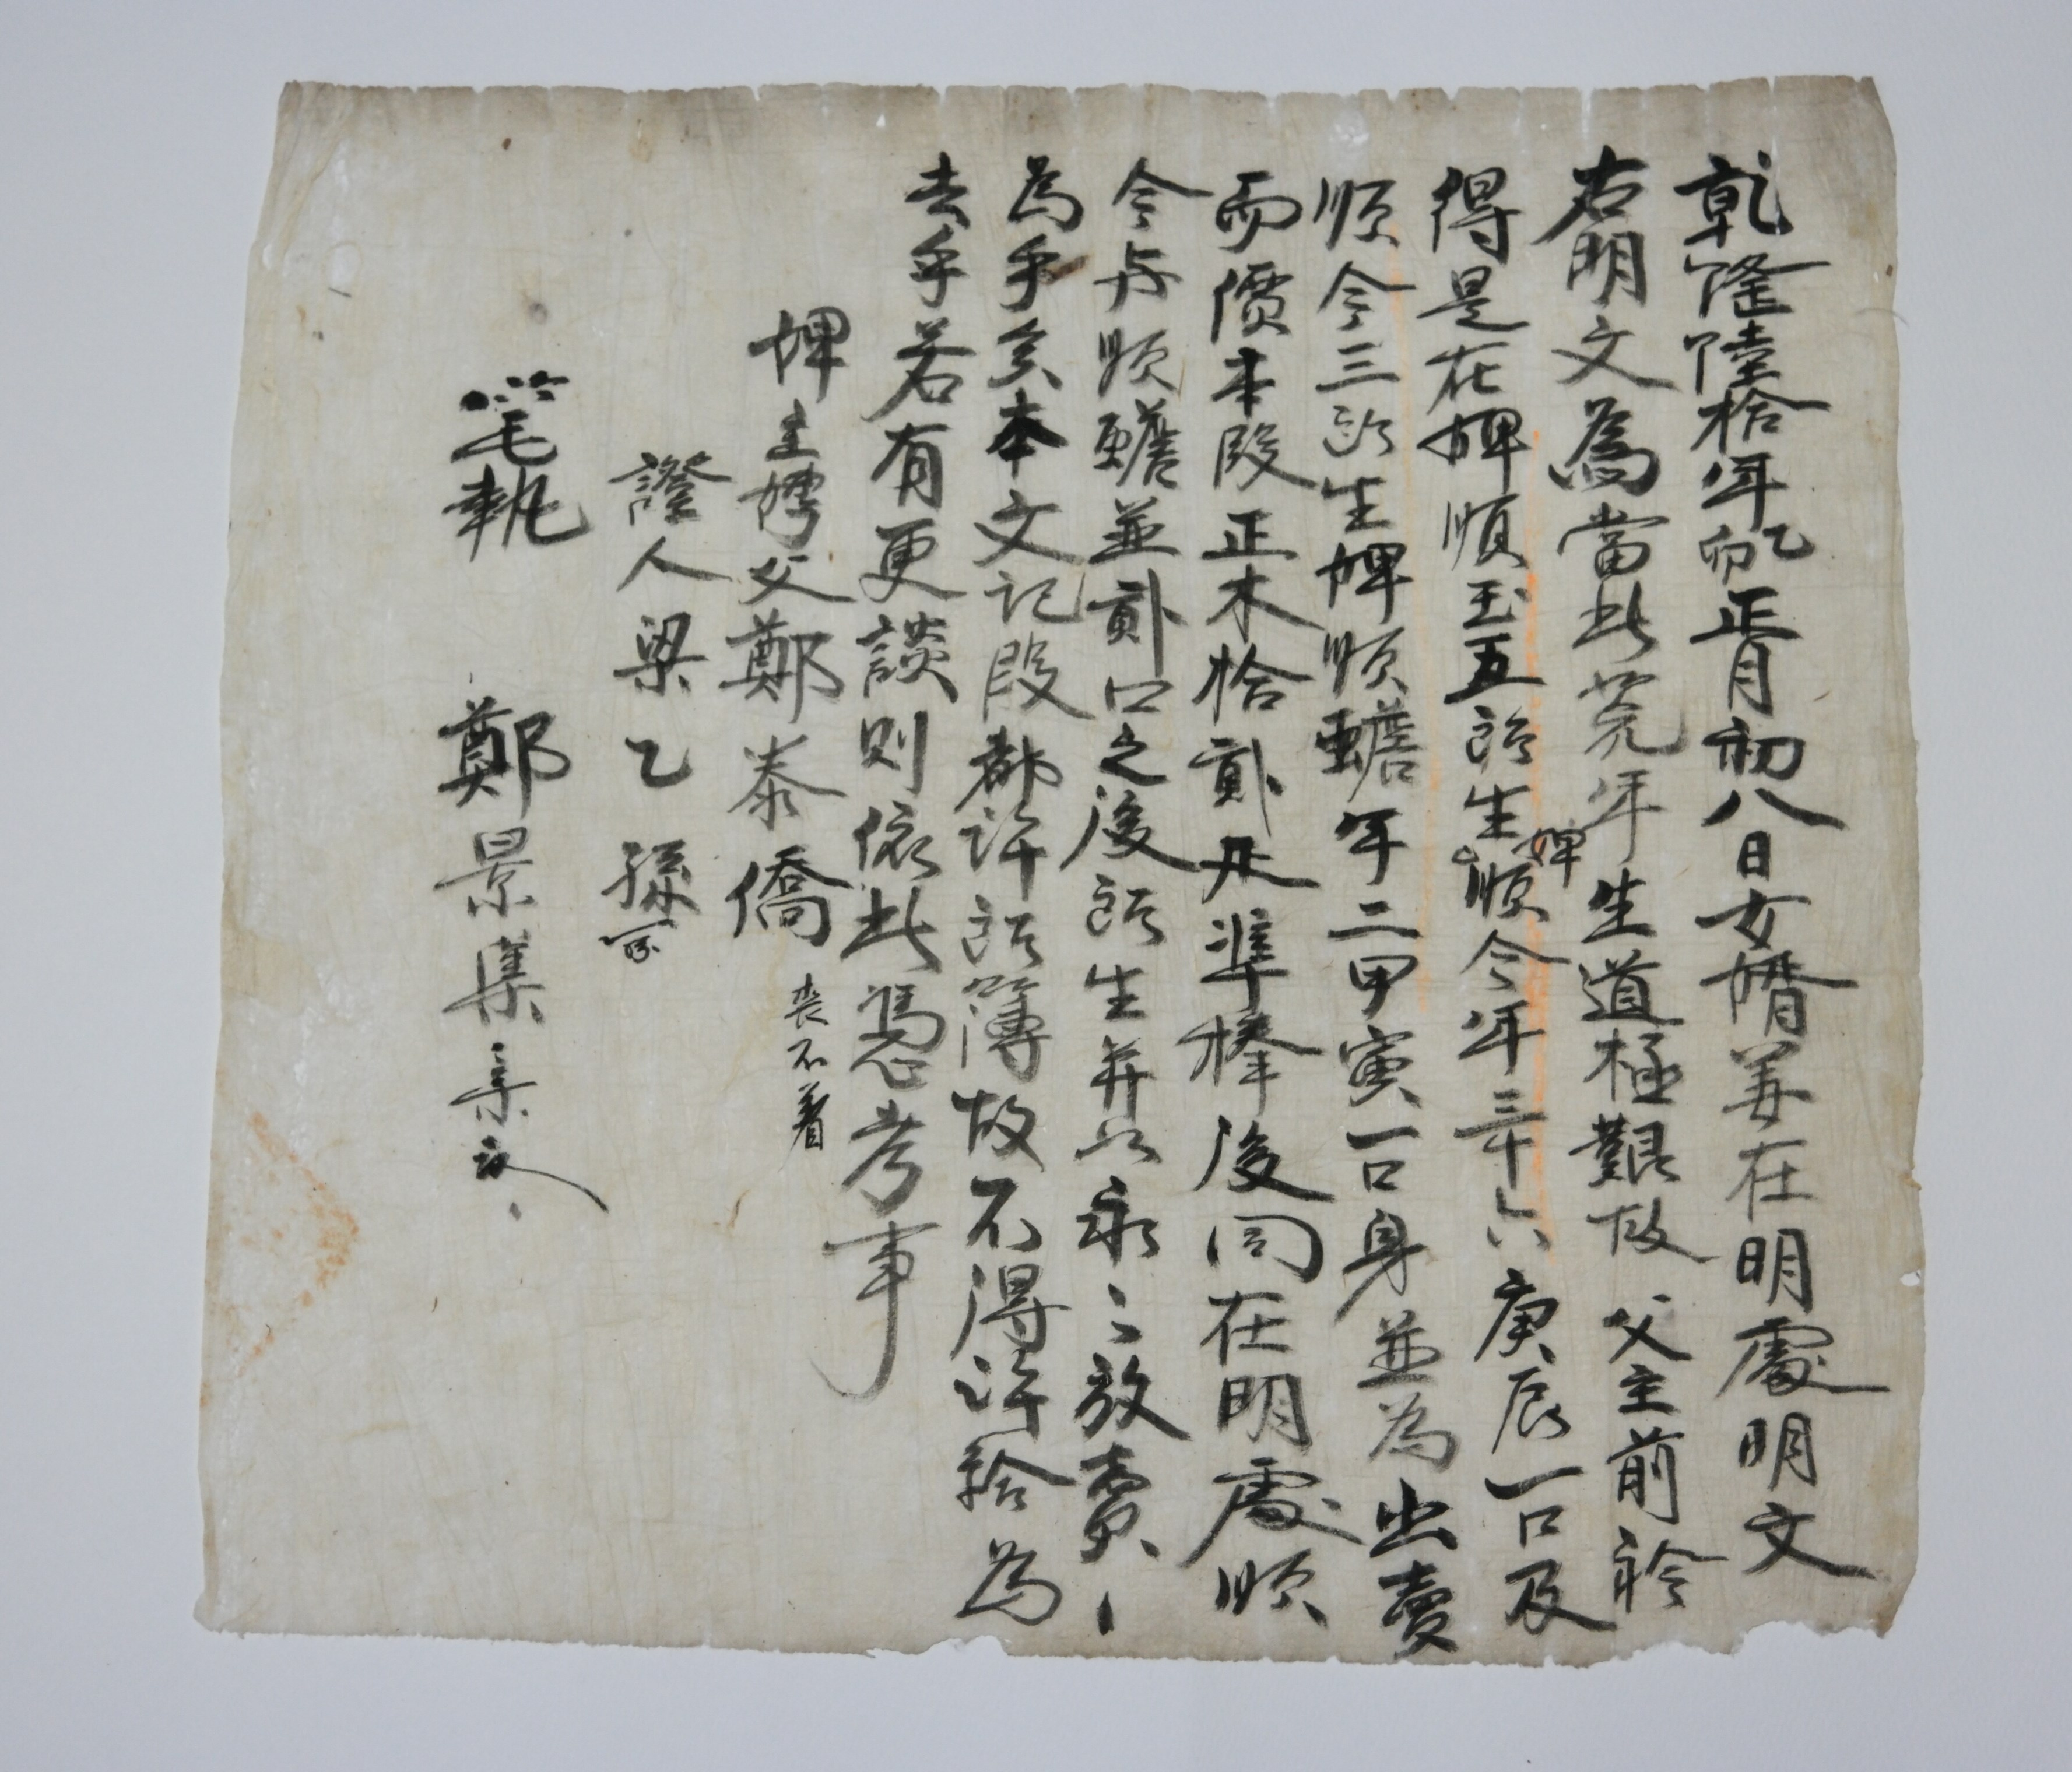 乾隆陸拾年乙卯正月初八日女婿姜在明處明文
右明文爲當此荒年生道極艱故父主前衿
得是在婢順玉五所生婢順今年三十六庚辰一口及
順今三所生婢順蟾年二甲寅一口身並為出賣
而價本段正木拾貳疋準捧後同在明處順
今与順蟾並貳口之後所生并以永々放賣
為乎矣本文記段都許所簿故不得許給為
去乎若有更談則依此憑考事
婢主娉父鄭泰僑 喪不着
證人梁乙孫
筆執 鄭景集